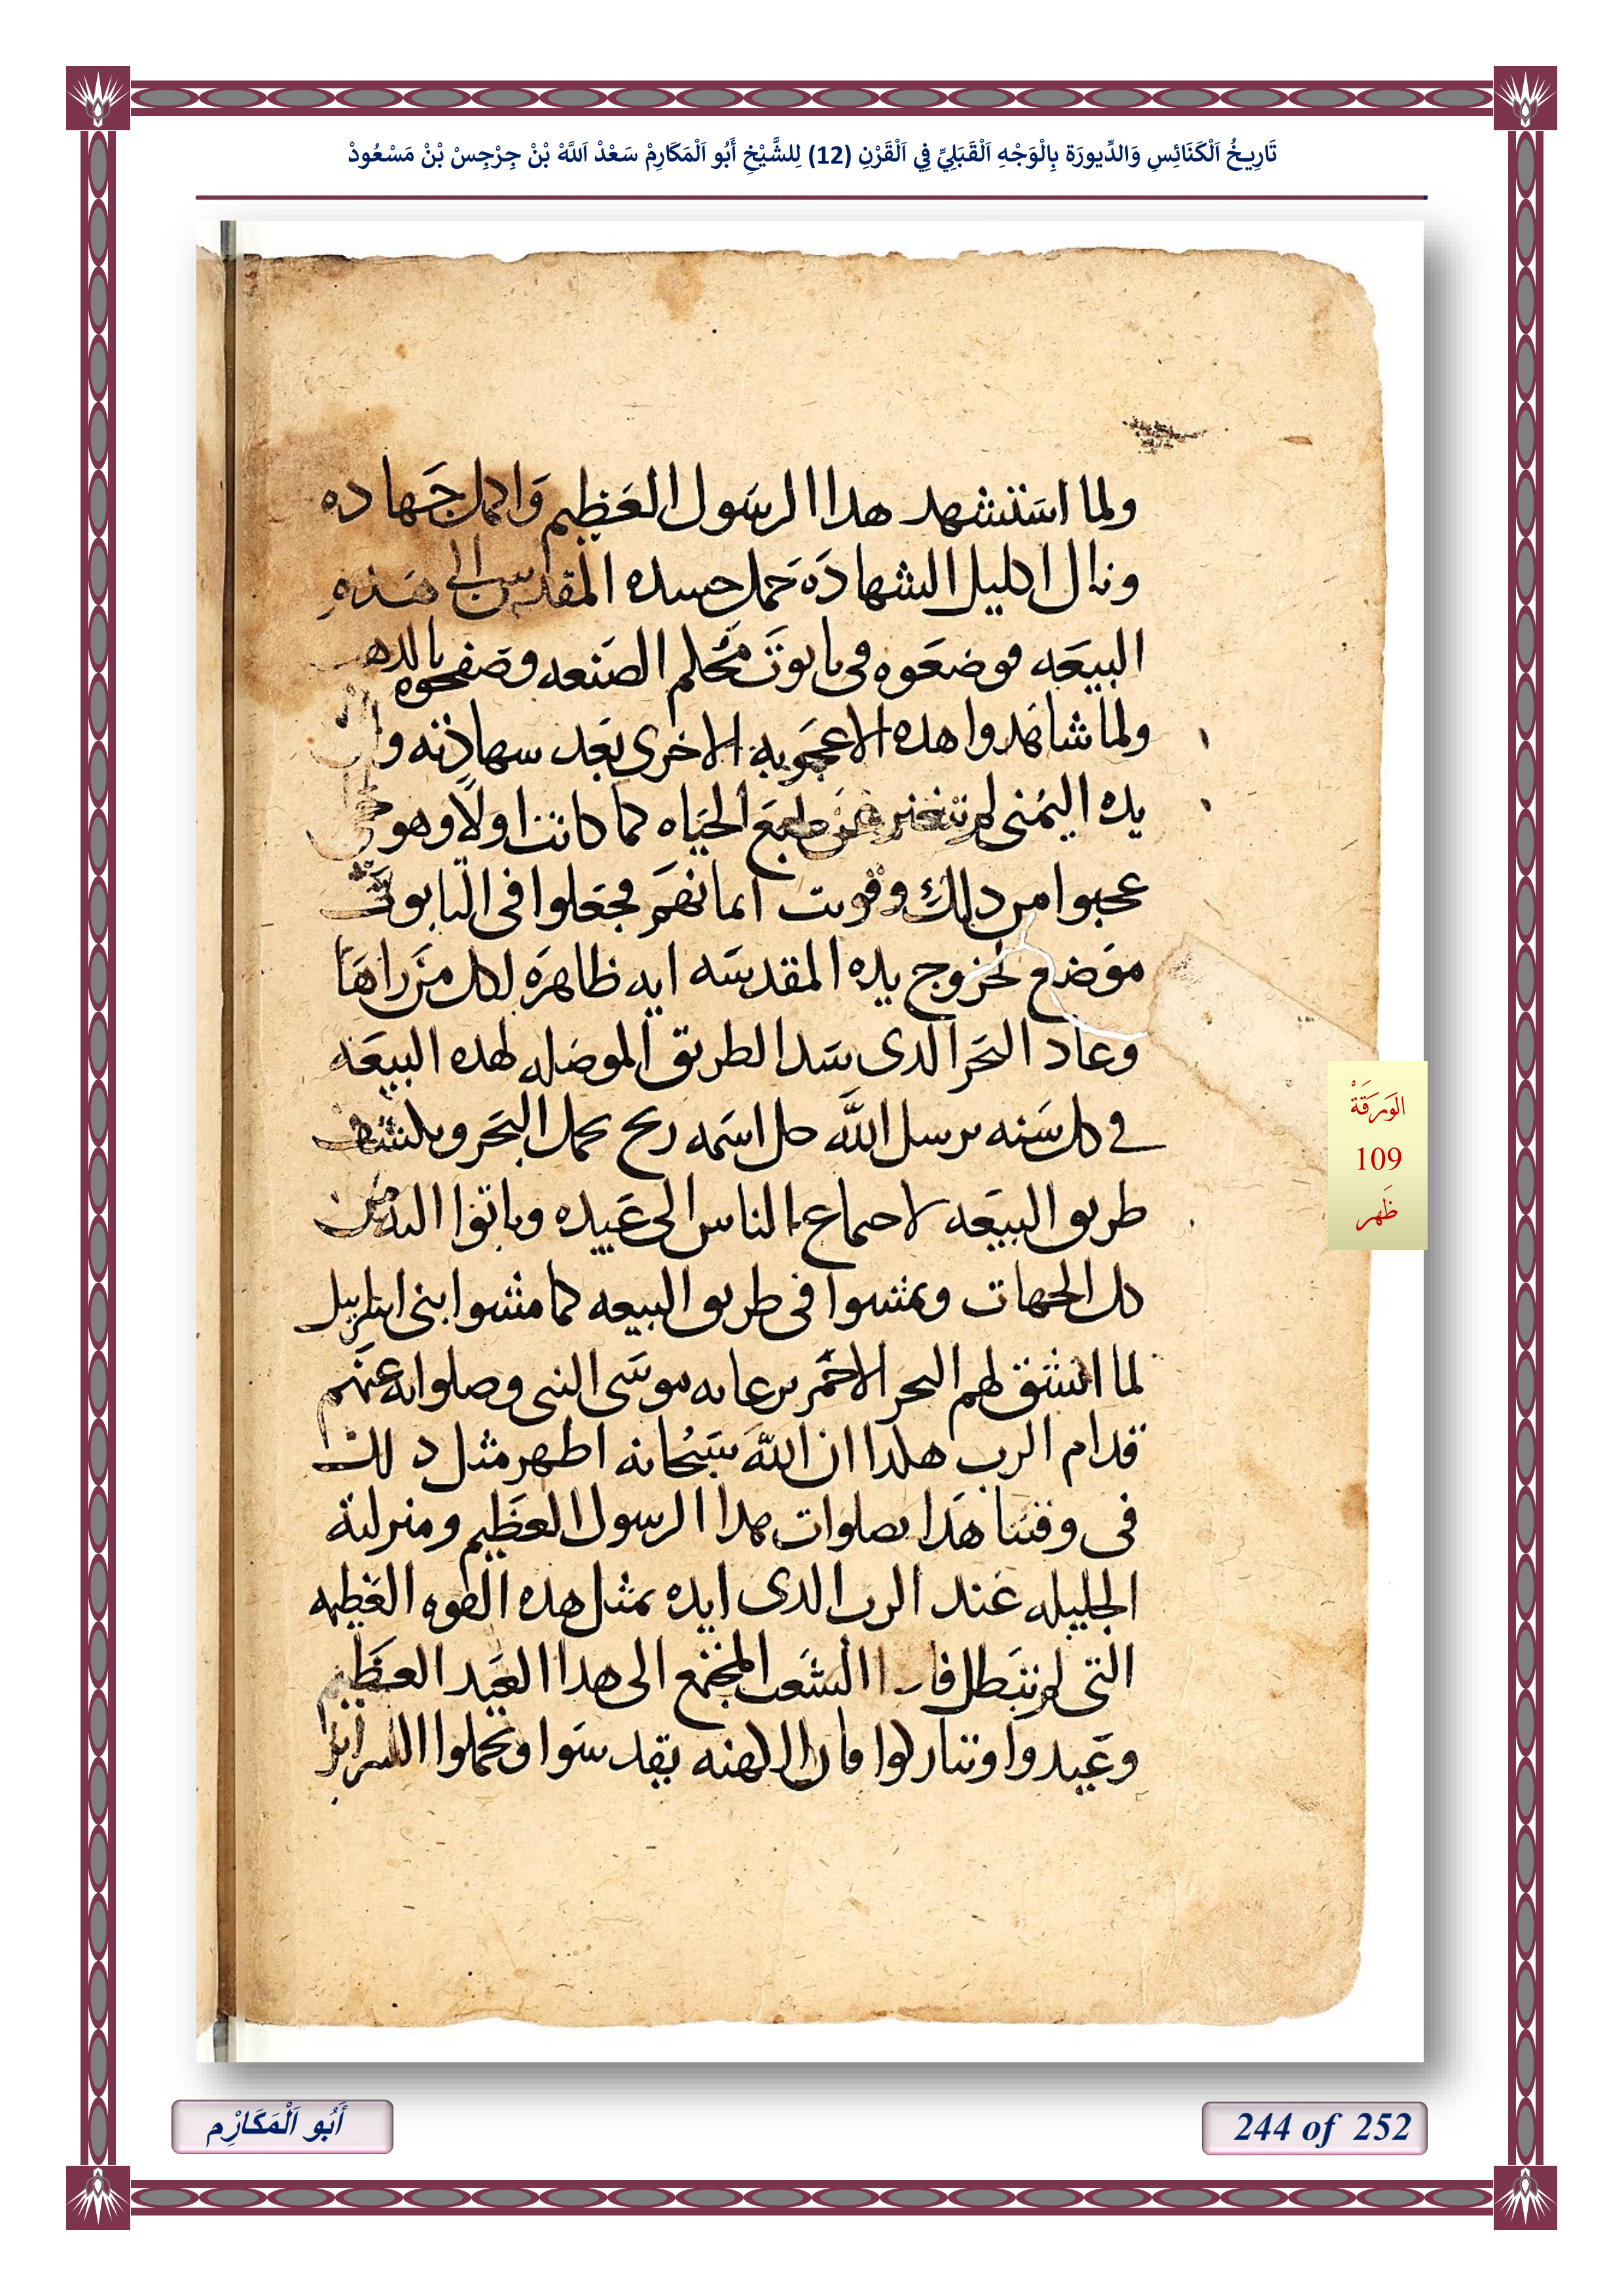 تَارِيخُ اَلْكَنَائِسِ وَالدِّيورَة بِالْوَجْهِ اَلْقَبَلِيِّ فِي اَلْقَرْنِ (12) لِلشَّيْخِ أَبُو اَلْمَكَارِمْ سَعْدْ اَللَّهْ بْنْ جِرْجِسْ بْنْ مَسْعُودْ
ولما استشهد هدا الرسول العظيم واكمل جهاده
ونال اكليل الشهاده حمل جسده المقدس الى هذه
البيعه فوضعوه في تابوت محكم الصنعه وصفحوه بالدهب
ولما شاهدوا هده الاعجوبه الاخرى بعد شهادته وان
يده اليمنى لم تتغير عن طبع الحياه كما كانت اولا وهو حي
عجبوا من دلك وقويت امانتهم فجعلوا في التابوت
موضع لخروج يده المقدسه ايه ظاهره لكل من راها
وعاد البحر الدى سد الطريق الموصله لهده البيعه
في كل سنه يرسل الله جل اسمه ريح تحمل البحر ويكشف
طريق البيعه لاجتماع الناس الى عيده وياتوا اليه من
كل الجهات ويمشوا في طريق البيعه كما مشوا بنى اسراييل
لما انشق لهم البحر الاحمر برعايه موسى النبى وصلواته عنهم
قدام الرب هكدا ان الله سبحانه اظهر مثل دلك
في وقتنا هدا بصلوات هدا الرسول العظيم ومنزلته
الجليله عند الرب الدى ايده بمثل هده القوه العظيمه
التى لم تبطل فادا الشعب المجتمع الى هدا العيد العظيم
وعيدوا وتباركوا فان الكهنه يقدسوا ويحملوا السراير
الوَرَقَةْ
109
ظَهر
أَبُو اَلْمَكَارْم
244 of 252